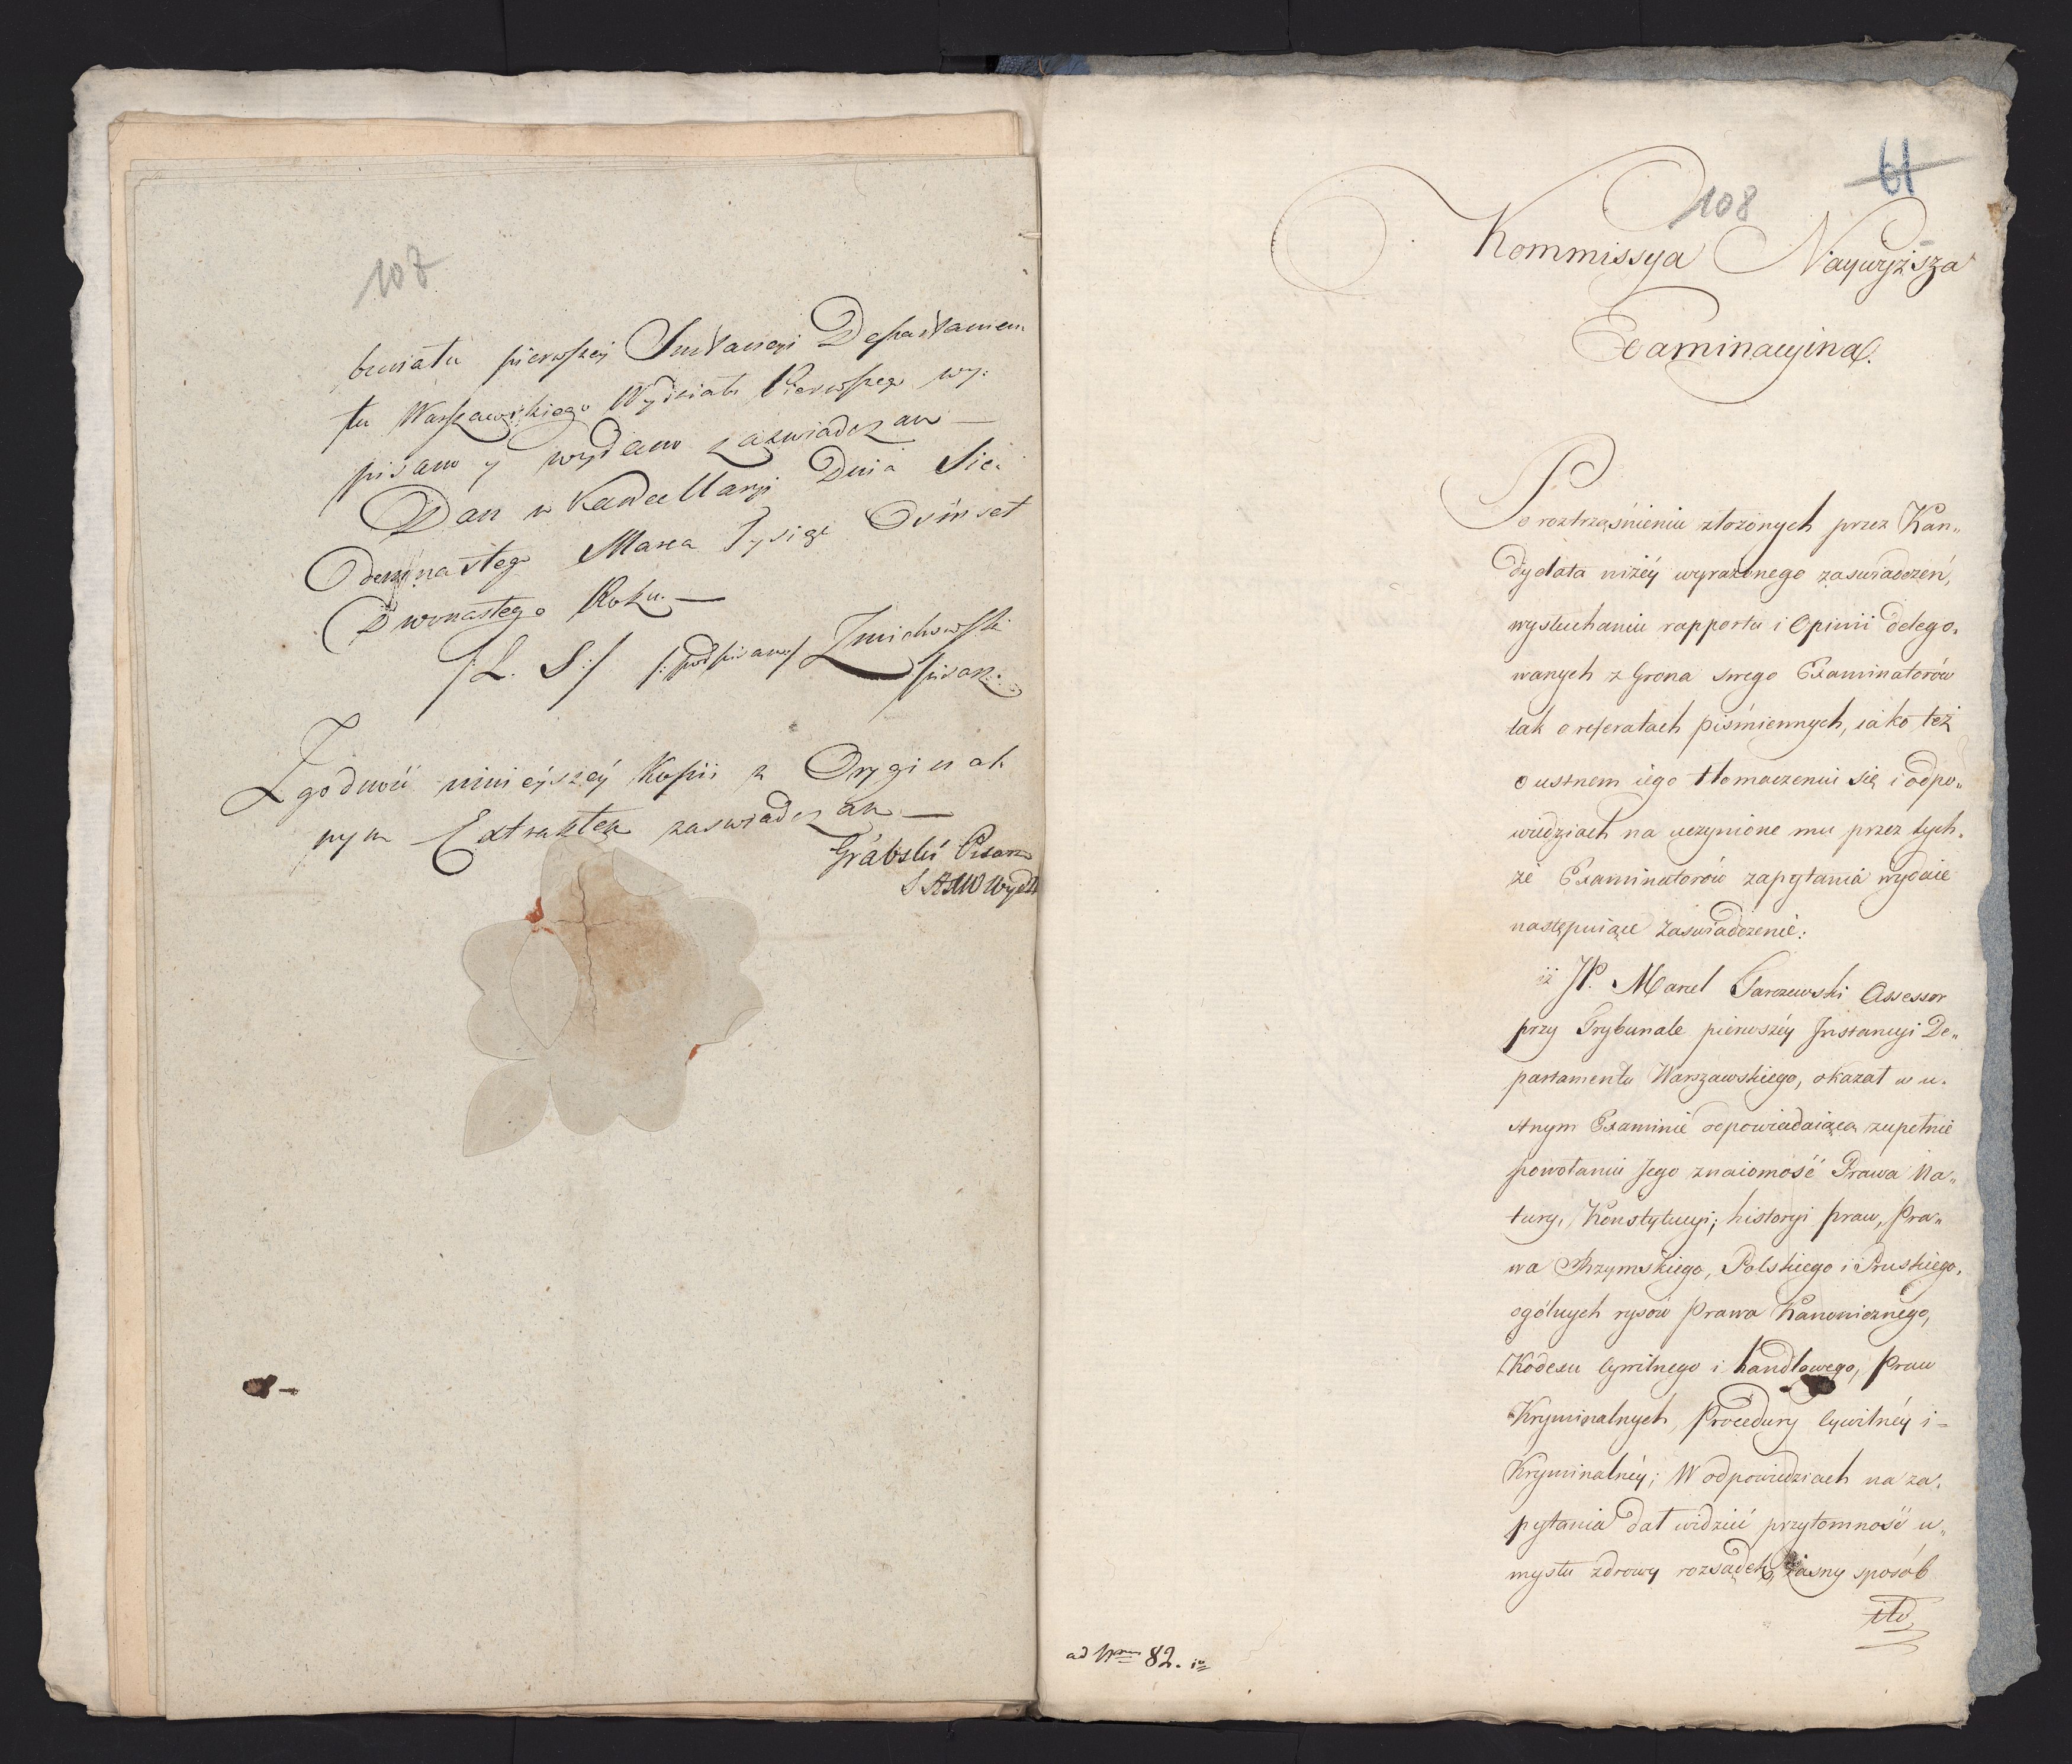 107
bunatu pierwszey Instancyi Departamen
tu Warszawskiego Wydziału Pierwszego wy:
pisano y wydano zaświadczam —
Dan w Kancellaryi Dnia Sie:
demnastego Marca Tysiąc Osimset
Dwunastego Roku. —
/L. S:/ /:podpisano:/ Zmichowski
pisarz.
Zgodność ninieyszey Kopii z Oryginal
nym Extraktem zaswiadczam —
Grabski Pisarz
61
108
Kommissya Naywyższa
Examinacyina.
Po roztrząśnieniu złożonych przez Kan„
dydata niżéy wyrażonego zaswiadczeń,
wysłuchaniu rapportu i Opinii delego„
wanych z Grona swego Examinatorów
tak o referatach piśmiennych, iako też
o ustnem iego tłomaczeniu się i odpo„
wiedziach na uczynione mu przez tych„
że Examinatorów zapytania wydaie
następuiące zaswiadczenie:
iż JP. Marcel Tarczewski Assessor
przy Trybunale pierwszéy Instancyi De„
partamentu Warszawskiego, okazał w u„
stnym Examinie odpowiadaiącą zupełnie
powołaniu Jego znaiomość Prawa Na„
tury, Konstytucyi; historyi praw, Pra„
wa Rzymskiego, Polskiego i Pruskiego,
ogólnych rysów Prawa Kanonicznego,
Kodexu Cywilnego i handlowego, Praw
Kryminalnych, Procedury Cywilnéy i =
Kryminalnéy; W odpowiedziach na za„
pytania dał widzieć przytomność u„
mysłu zdrowy rozsądek, iasny sposób
itd
ad Nrum 82.